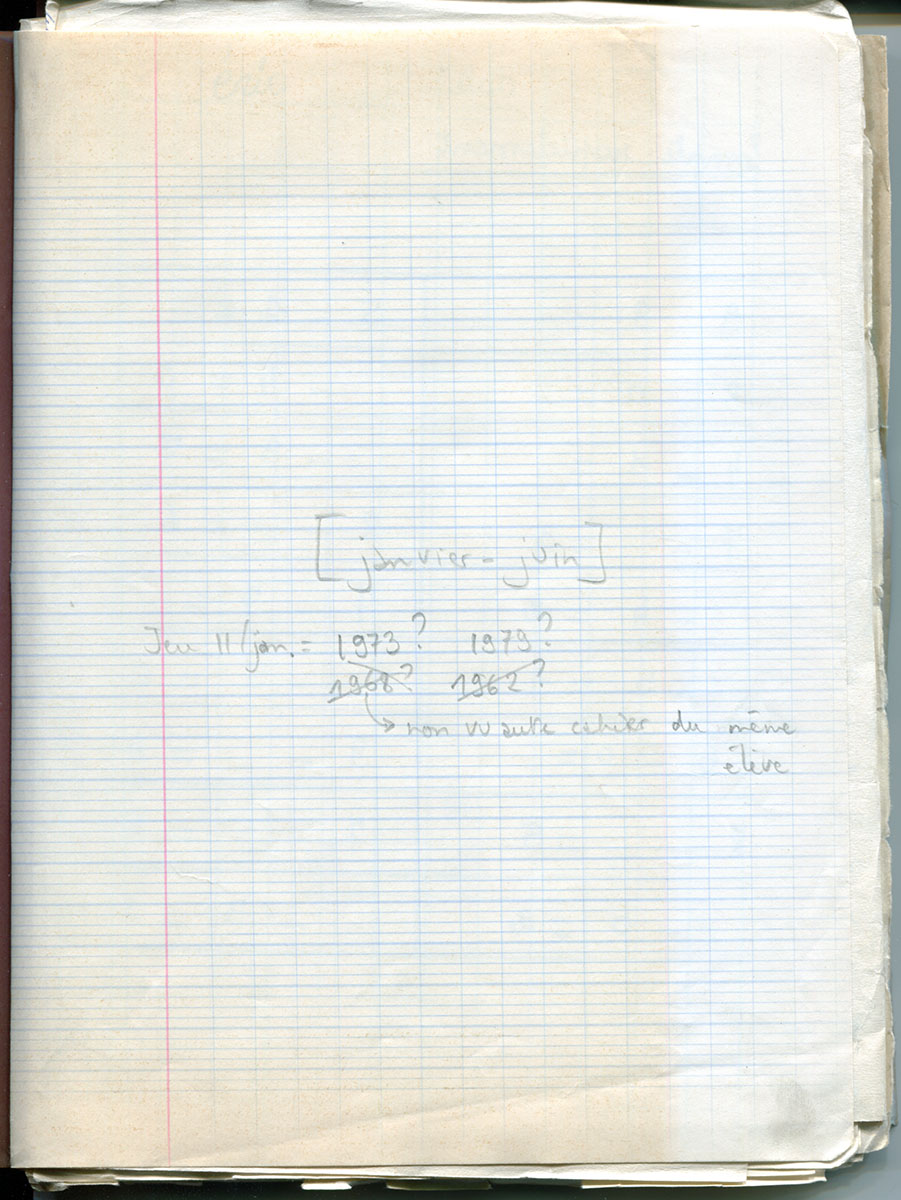 [janvier - juin]
Jeu 11/jan. = 1973? 1979?
1968? 1962?
→ non vu autre cahier du même
élève